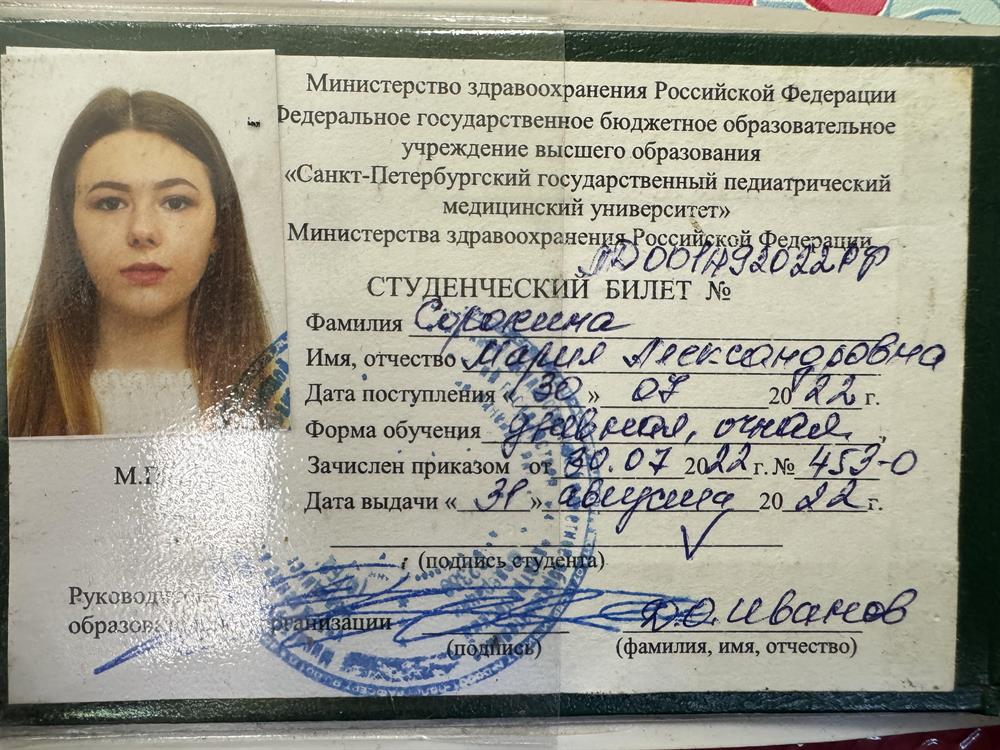 Министерство здравоохранения Российской Федерации
Федеральное государственное бюджетное образовательное
учреждение высшего образования
«Санкт-Петербургский государственный педиатрический
медицинский университет»
Министерства здравоохранения Российской Федерации
СТУДЕНЧЕСКИЙ БИЛЕТ №
Фамилия Сорокина
Имя, отчество Мария Александровна
Дата поступления « 30 » 07 20 22 г.
Форма обучения очная
Зачислен приказом от 30.07 2022 г. № 453-О
Дата выдачи « 31 » августа 20 22 г.
(подпись студента)
Д.О. Иванов
(подпись) (фамилия, имя, отчество)